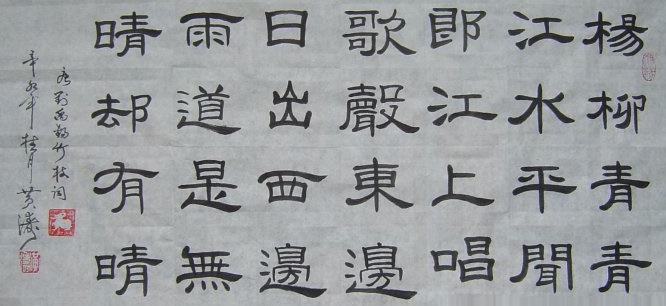 楊柳青青
江水平聞
郎江上唱
歌聲東邊
日出西邊
雨道是無
晴却有晴
唐劉禹錫竹枝词
辛卯年桂月黄